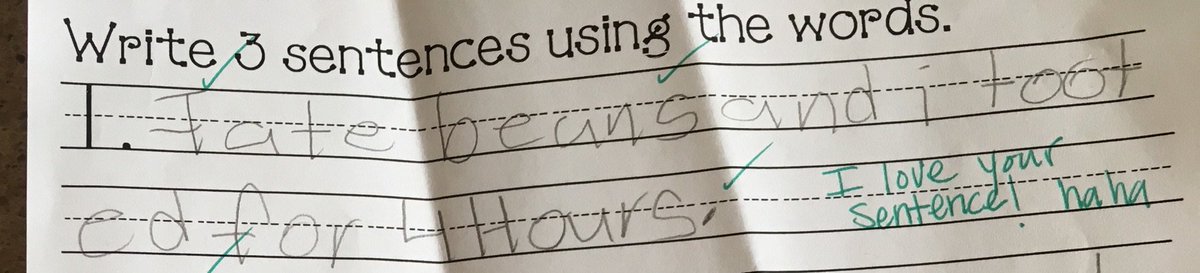 Write 3 sentences using the words.
1. I ate beans and i toot
ed for 4 Hours.
I love your
sentence! haha